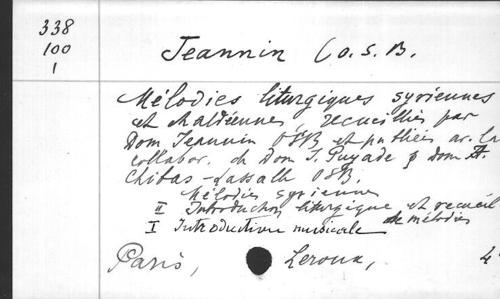 338
100
1
Jeannin (O.S.B.
Mélodies liturgiques syriennes
et chaldéennes, recueillies par
Dom Jeannin OSB et publiées av. la
collabor. de Dom J. Puyade & Dom A.
Chibas-Lassalle OSB.
Mélodies syriennes
II Introduction liturgique et recueil
de mélodies
I Introduction musicale
Paris, Leroux, 4°